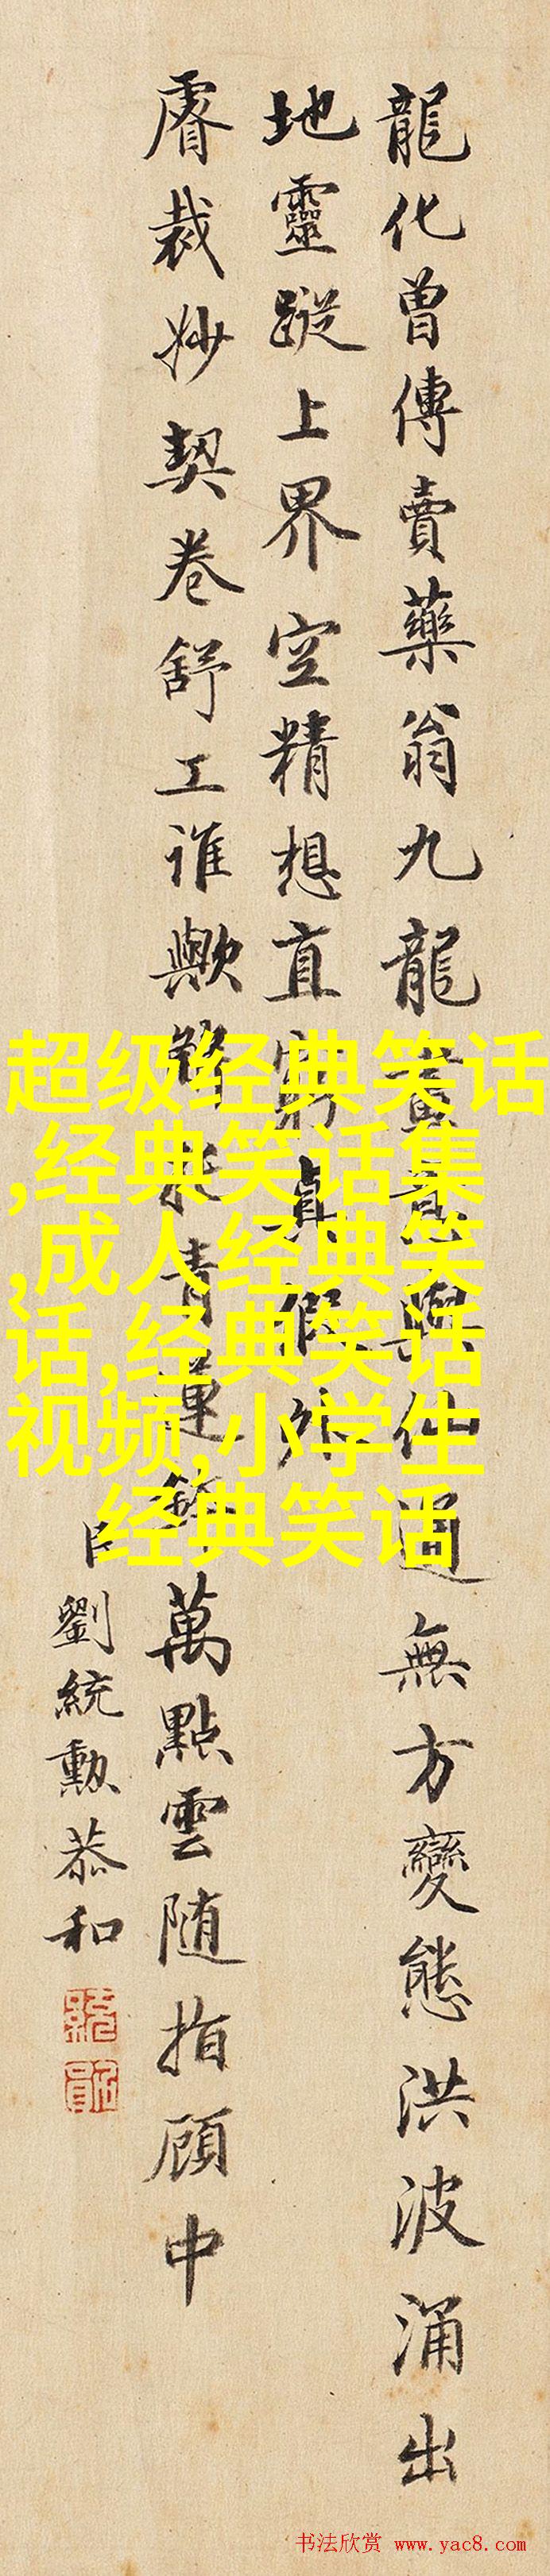 龍化曾傳賣藥翁九龍畫意與仙通無方變態洪波涌出
地靈蹤上界空精想直窮真假外
睿裁妙契卷舒工誰歟 青蓮 萬點雲随指顧中
臣劉統勳恭和
超级经典笑话
,经典笑话集
,成人经典笑
话,经典笑话
视频,小学生
经典笑话
书法欣赏 www.yac8.com